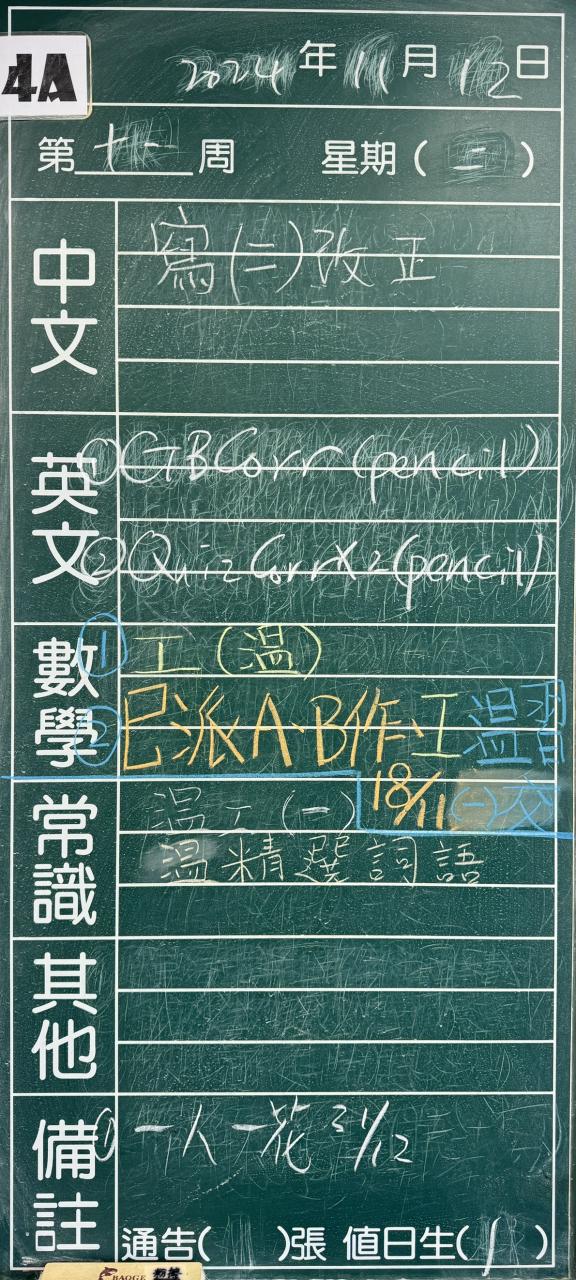 4A
2024年11月12日
第十一周 星期(二)
中文
寫(二)改正
英文
①GBCorr(pencil)
②Quiz Corrx2(pencil)
數學
① 工(溫)
② 已派A、B作工溫習
18/11(一)交
常識
溫工(一)
溫精選詞語
其他
備註
① 一人一花 31/12
通告( )張 值日生(1)
BAOGE